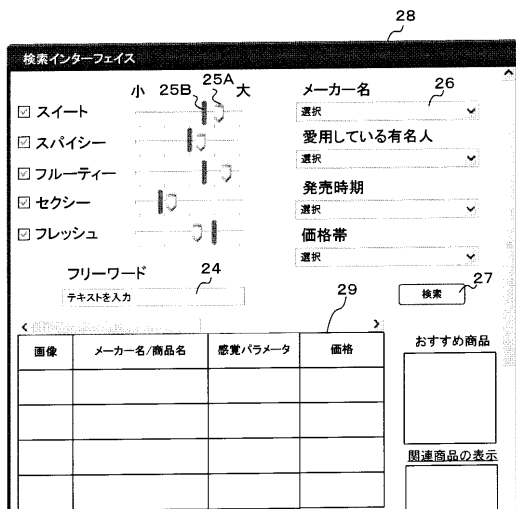 28
検索インターフェイス
小 25B 25A 大
スイート
スパイシー
フルーティー
セクシー
フレッシュ
メーカー名 26
選択
愛用している有名人
選択
発売時期
選択
価格帯
選択
フリーワード 24
テキストを入力
検索 27
29
画像 メーカー名/商品名 感覚パラメータ 価格
おすすめ商品
関連商品の表示